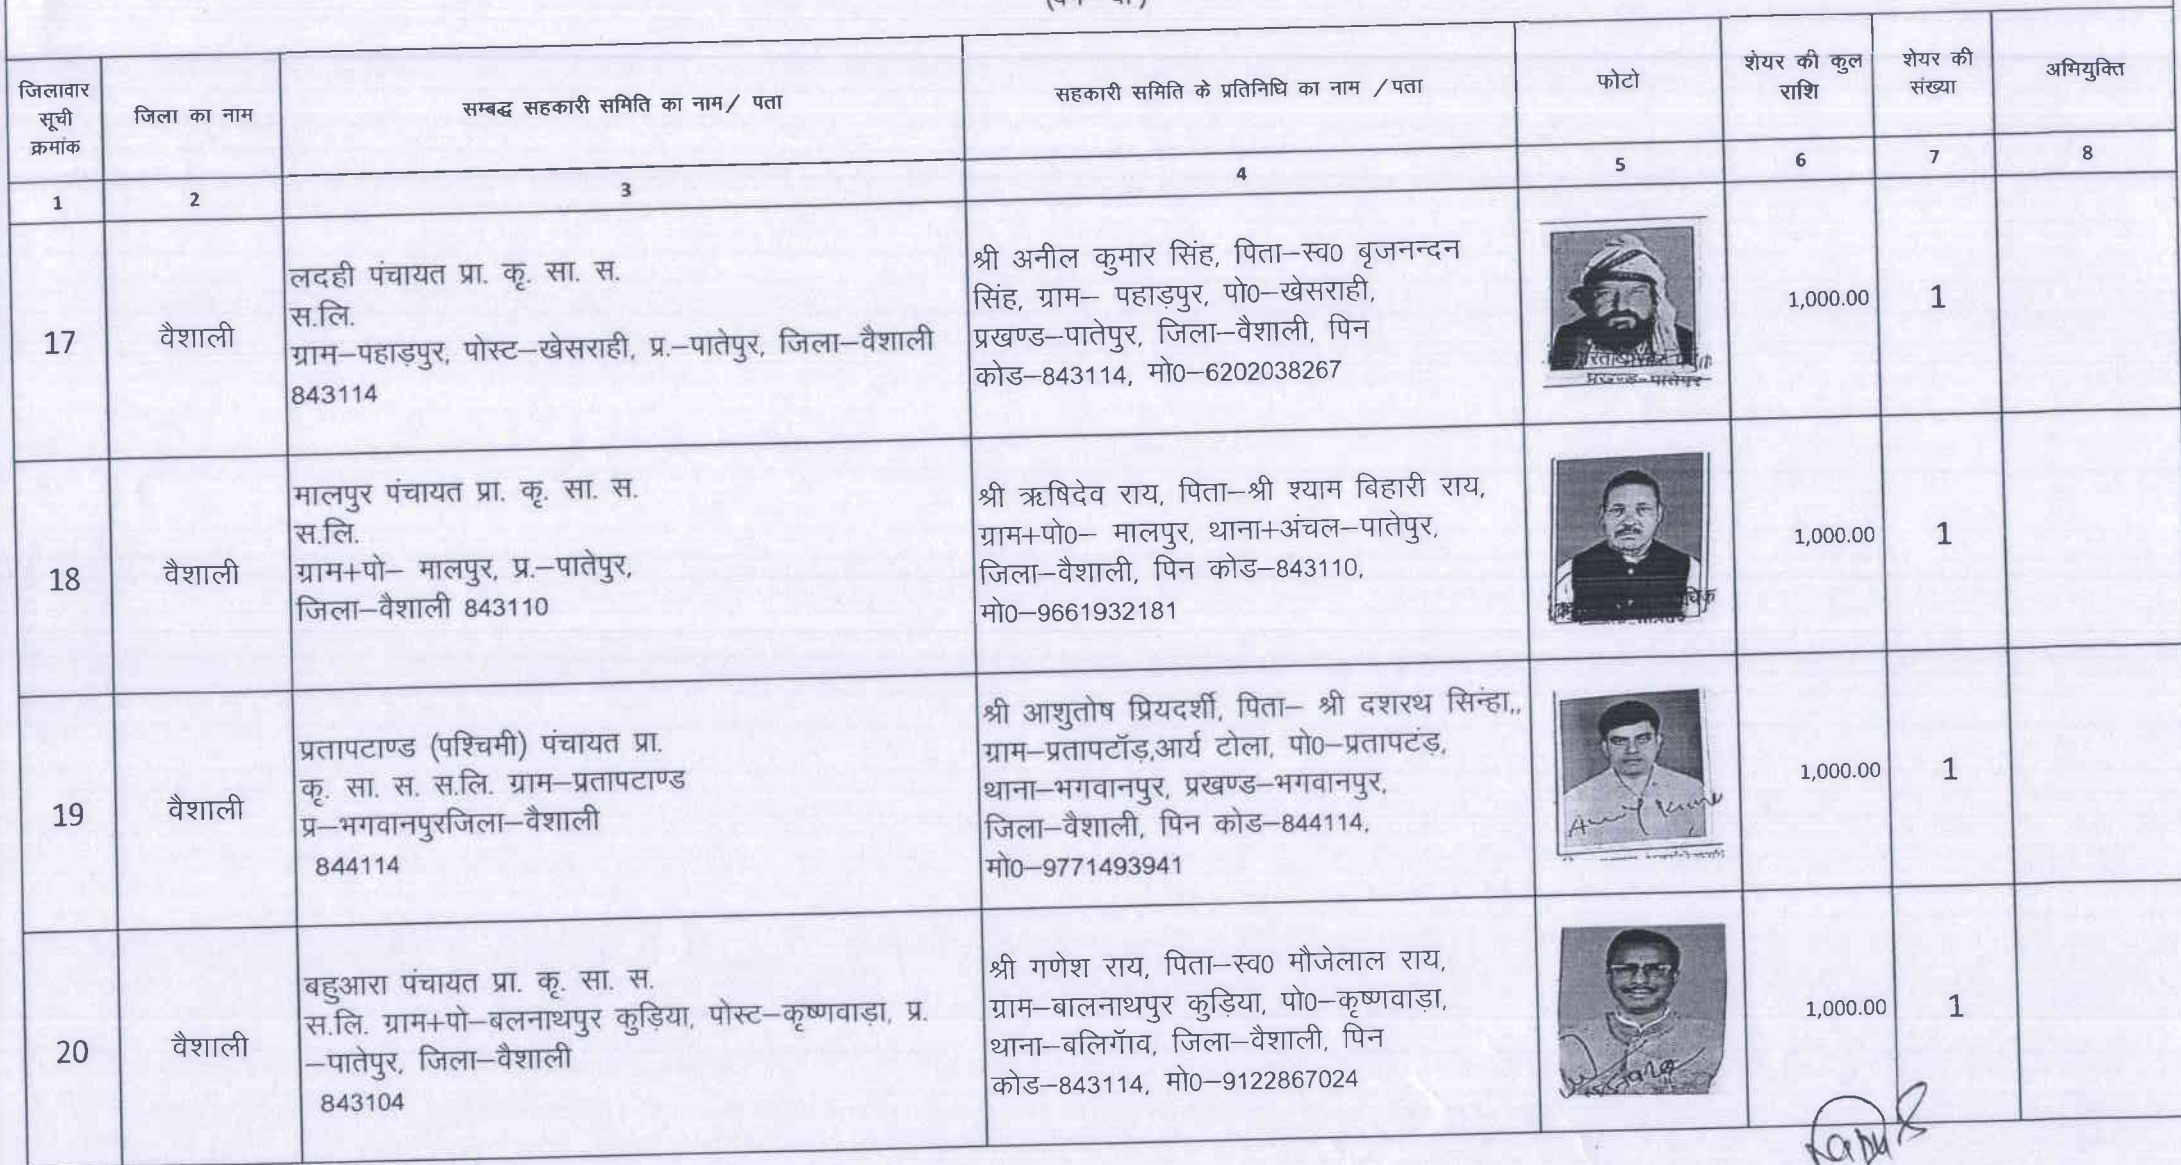 जिलावार
सूची
क्रमांक
जिला का नाम
सम्बद्ध सहकारी समिति का नाम/ पता
सहकारी समिति के प्रतिनिधि का नाम /पता
फोटो
शेयर की कुल
राशि
शेयर की
संख्या
अभियुक्ति
1 2 3 4 5 6 7 8
17
वैशाली
लदही पंचायत प्रा. कृ. सा. स.
स.लि.
ग्राम–पहाड़पुर, पोस्ट–खेसराही, प्र.–पातेपुर, जिला–वैशाली
843114
श्री अनील कुमार सिंह, पिता–स्व0 बृजनन्दन
सिंह, ग्राम– पहाड़पुर, पो0–खेसराही,
प्रखण्ड–पातेपुर, जिला–वैशाली, पिन
कोड–843114, मो0–6202038267
प्रखण्ड-पातेपुर
1,000.00
1
18
वैशाली
मालपुर पंचायत प्रा. कृ. सा. स.
स.लि.
ग्राम+पो– मालपुर, प्र.–पातेपुर,
जिला–वैशाली 843110
श्री ऋषिदेव राय, पिता–श्री श्याम बिहारी राय,
ग्राम+पो0– मालपुर, थाना+अंचल–पातेपुर,
जिला–वैशाली, पिन कोड–843110,
मो0–9661932181
1,000.00
1
19
वैशाली
प्रतापटाण्ड (पश्चिमी) पंचायत प्रा.
कृ. सा. स. स.लि. ग्राम–प्रतापटाण्ड
प्र–भगवानपुरजिला–वैशाली
844114
श्री आशुतोष प्रियदर्शी, पिता– श्री दशरथ सिन्हा,,
ग्राम–प्रतापटॉड़,आर्य टोला, पो0–प्रतापटंड़,
थाना–भगवानपुर, प्रखण्ड–भगवानपुर,
जिला–वैशाली, पिन कोड–844114,
मो0–9771493941
1,000.00
1
20
वैशाली
बहुआरा पंचायत प्रा. कृ. सा. स.
स.लि. ग्राम+पो–बलनाथपुर कुड़िया, पोस्ट–कृष्णवाड़ा, प्र.
–पातेपुर, जिला–वैशाली
843104
श्री गणेश राय, पिता–स्व0 मौजेलाल राय,
ग्राम–बालनाथपुर कुड़िया, पो0–कृष्णवाड़ा,
थाना–बलिगॅाव, जिला–वैशाली, पिन
कोड–843114, मो0–9122867024
1,000.00
1